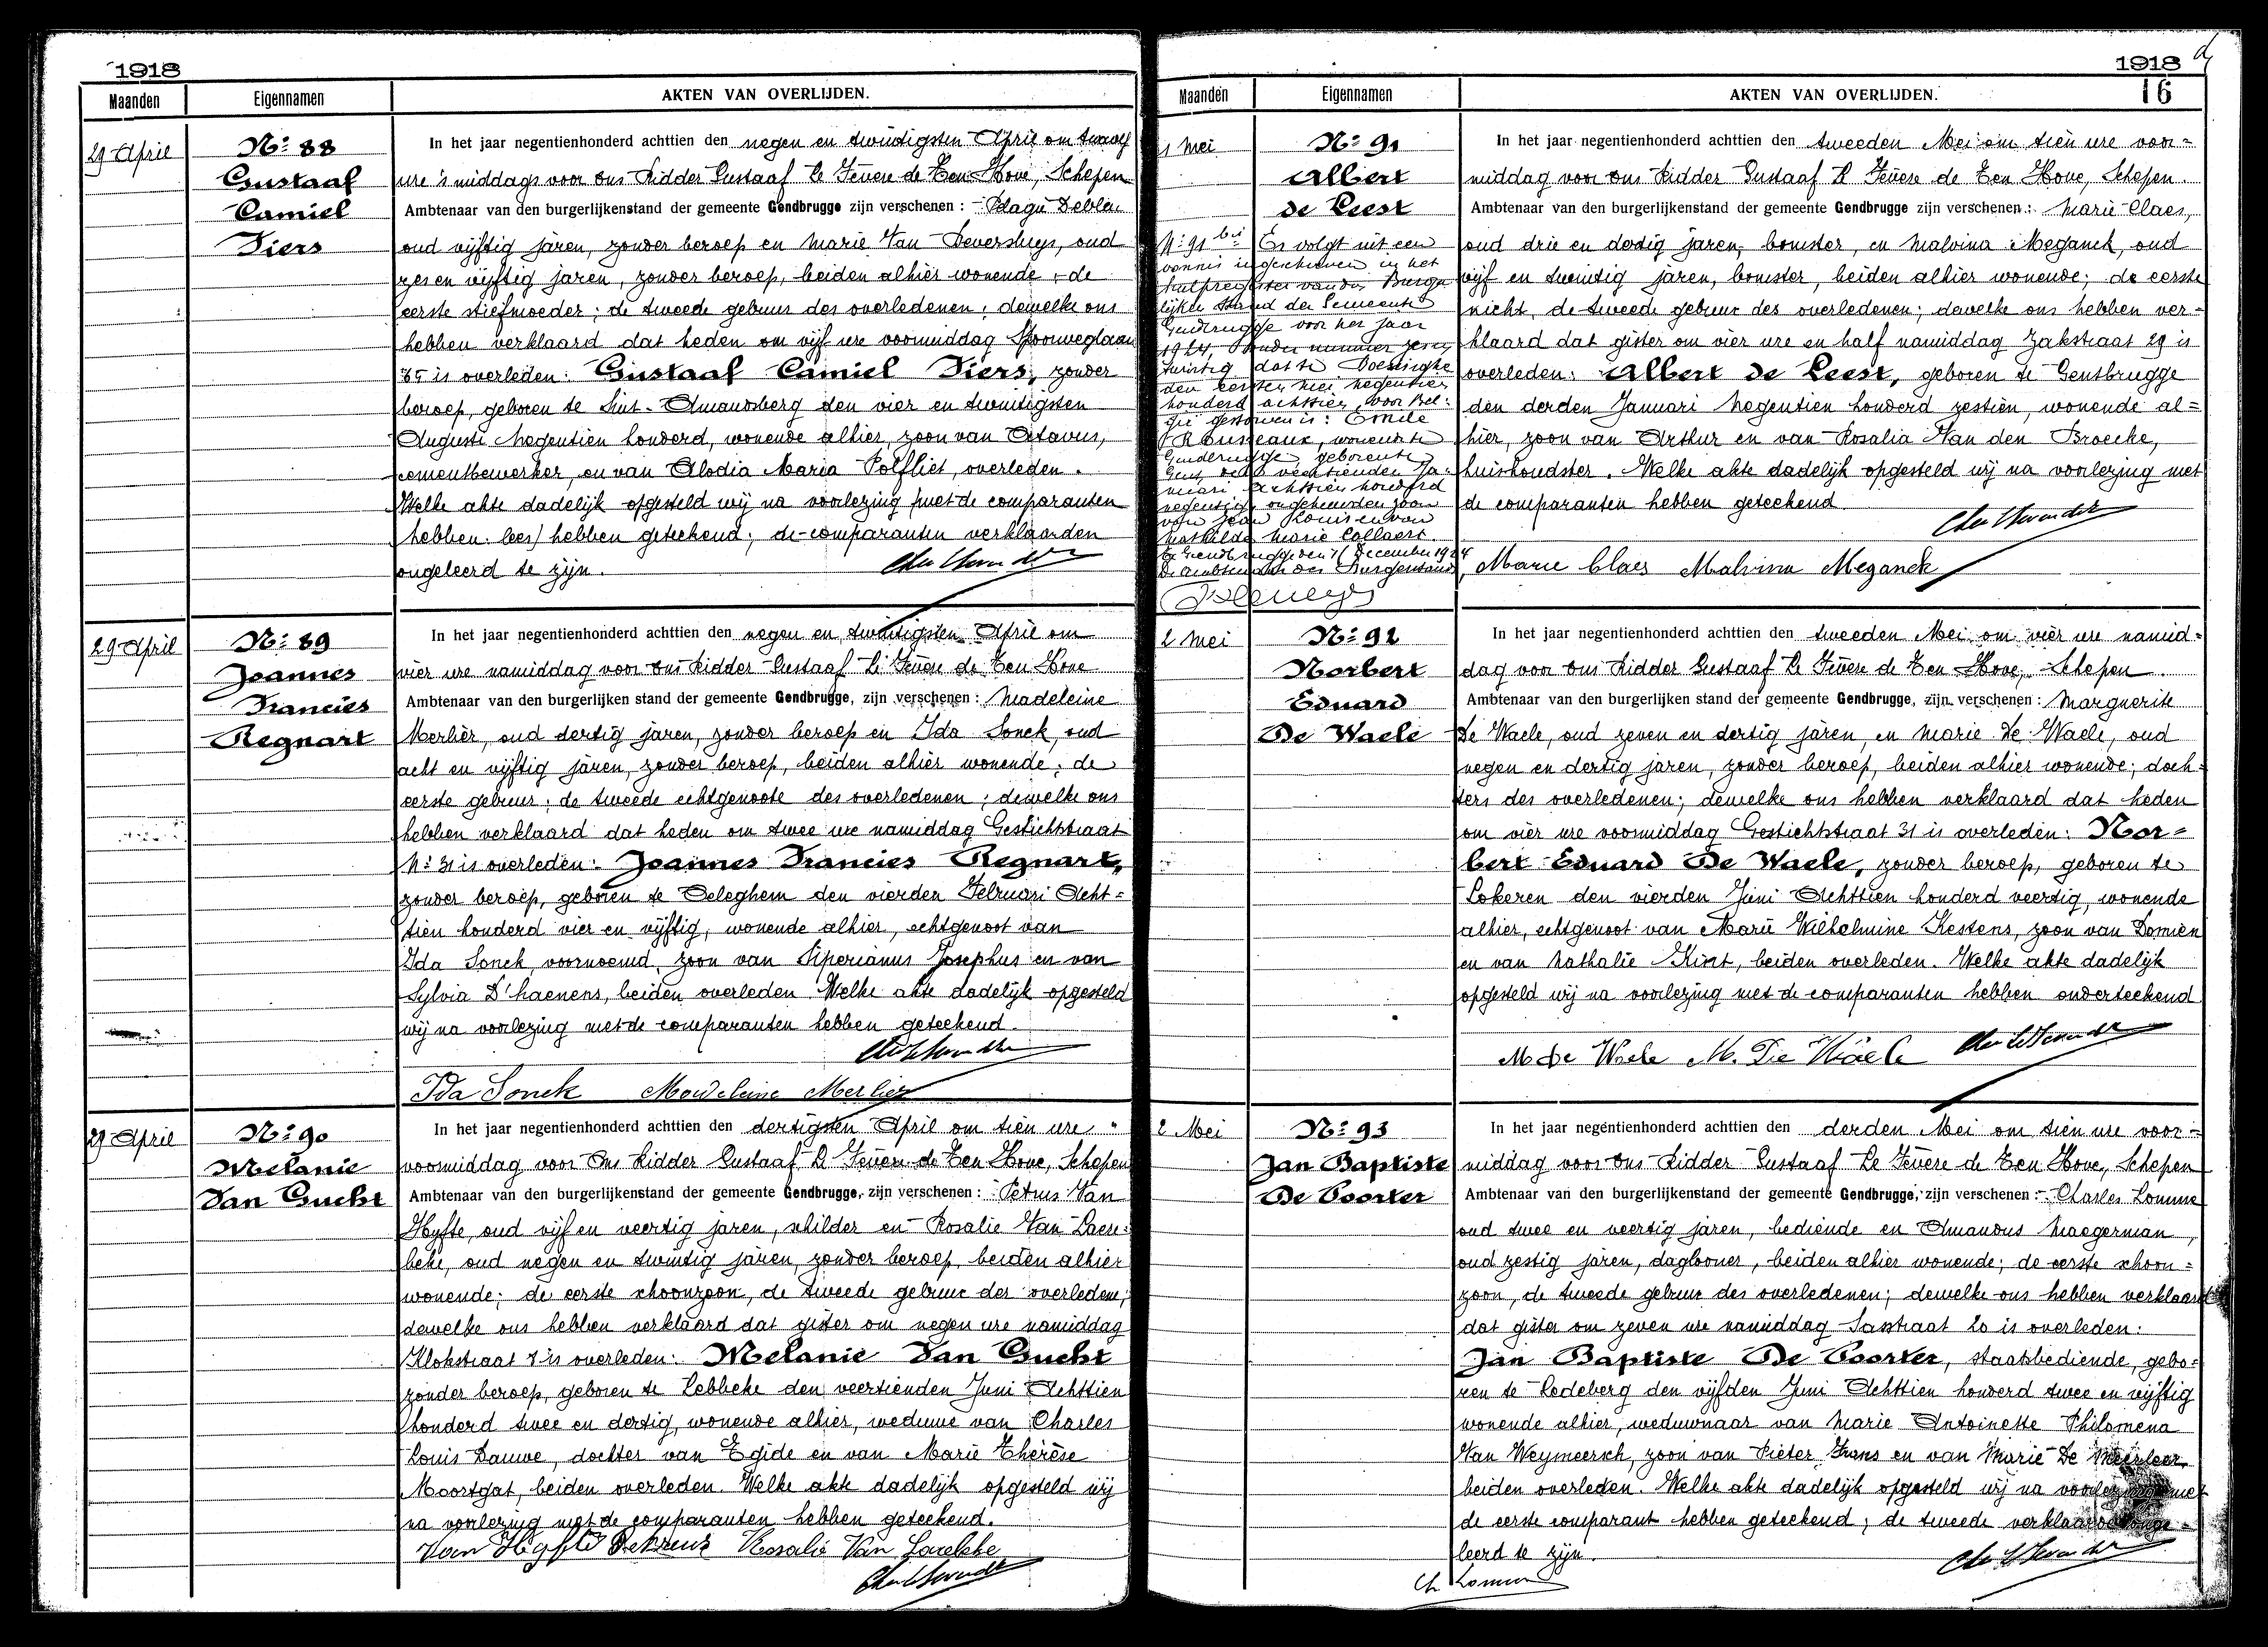 1918
Maanden Eigennamen AKTEN VAN OVERLIJDEN.
29 April
Nº 88
Gustaaf
Camiel
Fiers
In het jaar negentienhonderd achttien den negen en twintigsten April om twaalf
ure 's middags voor Ons Ridder Gustaaf Le Fèvere de Ten Hove, Schepen
Ambtenaar van den burgerlijkenstand der gemeente Gendbrugge zijn verschenen :
oud vijftig jaren, zonder beroep en Marie Van Deversluys, oud
zes en vijftig jaren, zonder beroep, beiden alhier wonende ; de
eerste stiefmoeder ; de tweede gebuur des overledenen ; dewelke ons
hebben verklaard dat heden om vijf ure voormiddag Spoorweglaan
85 is overleden : Gustaaf Camiel Fiers, zonder
beroep, geboren te Sint-Amandsberg den vier en twintigsten
Augusti Negentien honderd, wonende alhier, zoon van Octavus,
cementbewerker, en van Alodia Maria Polfliet, overleden.
Welke akte dadelijk opgesteld wij na voorlezing (met de comparanten
hebben. lees) hebben geteekend ; de comparanten verklaarden
ongeleerd te zijn.
29 April
Nº 89
Joannes
Francies
Regnart
In het jaar negentienhonderd achttien den negen en twintigsten April om
vier ure namiddag voor Ons Ridder Gustaaf Le Fèvere de Ten Hove
Ambtenaar van den burgerlijken stand der gemeente Gendbrugge, zijn verschenen : Madeleine
Merlier, oud dertig jaren, zonder beroep en Ida Sonck, oud
acht en vijftig jaren, zonder beroep, beiden alhier wonende ; de
eerste gebuur ; de tweede echtgenoote des overledenen ; dewelke ons
hebben verklaard dat heden om twee ure namiddag Gestichtstraat
Nº 31 is overleden : Joannes Francies Regnart,
zonder beroep, geboren te Oeleghem den vierden Februari Acht=
tien honderd vier en vijftig, wonende alhier, echtgenoot van
Ida Sonck, voornoemd, zoon van Siperianus Josephus en van
Sylvia D'haenens, beiden overleden. Welke akte dadelijk opgesteld
wij na voorlezing met de comparanten hebben geteekend.
Ida Sonck Madeleine Merlier
29 April
Nº 90
Melanie
Van Gucht
In het jaar negentienhonderd achttien den dertigsten April om tien ure
voormiddag voor Ons Ridder Gustaaf Le Fèvere de Ten Hove, Schepen
Ambtenaar van den burgerlijkenstand der gemeente Gendbrugge, zijn verschenen : Petrus Van
Hyfte, oud vijf en veertig jaren, schilder en Rosalie Van Laere=
beke, oud negen en twintig jaren, zonder beroep, beiden alhier
wonende ; de eerste schoonzoon, de tweede gebuur der overledene ;
dewelke ons hebben verklaard dat gister om negen ure namiddag
Klokstraat 7 is overleden : Melanie Van Gucht
zonder beroep, geboren te Lebbeke den veertienden Juni Achttien
honderd twee en dertig, wonende alhier, weduwe van Charles
Louis Dauwe, dochter van Egide en van Marie Thérèse
Moortgat, beiden overleden. Welke akte dadelijk opgesteld wij
na voorlezing met de comparanten hebben geteekend.
Van Hyfte Rosalie Van
1918
16
Maanden Eigennamen AKTEN VAN OVERLIJDEN.
1 Mei
Nº 91
Albert
de Leest
Nº 91 bis Er volgt uit een
vonnis ingeschreven in het
hulpregister van den Burger
lijken Stand der Gemeente
Gendbrugge voor het jaar
1924, onder nummer zeven
twintig dat te Boesinghe
den eersten Mei negentien
honderd achttien, voor Bel=
gië gestorven is : Emile
Rousseaux, wonende te
Gendbrugge, geboren te
Gent, den veertienden Ja=
nuari achttien honderd
negentig, ongehuwden zoon
van Jean Louis en van
Mathilde Marie Collaert.
Te Gendbrugge den 11 December 1924
De ambtenaar des Burgerstands,
In het jaar negentienhonderd achttien den tweeden Mei om tien ure voor=
middag voor Ons Ridder Gustaaf Le Fèvere de Ten Hove, Schepen.
Ambtenaar van den burgerlijkenstand der gemeente Gendbrugge zijn verschenen : Marie Claes,
oud drie en dertig jaren, bomster, en Malvina Meganck, oud
vijf en twintig jaren, bomster, beiden alhier wonende ; de eerste
nicht, de tweede gebuur des overledenen ; dewelke ons hebben ver=
klaard dat gister om vier ure en half namiddag Zakstraat 29 is
overleden : Albert de Leest, geboren te Gentbrugge
den derden Januari Negentien honderd zestien, wonende al=
hier, zoon van Arthur en van Rosalia Van den Broecke,
huishoudster. Welke akte dadelijk opgesteld wij na voorlezing met
de comparanten hebben geteekend
Marie Claes Malvina Meganck
2 Mei
Nº 92
Norbert
Eduard
De Waele
In het jaar negentienhonderd achttien den tweeden Mei om vier ure namid=
dag voor Ons Ridder Gustaaf Le Fèvere de Ten Hove, Schepen.
Ambtenaar van den burgerlijken stand der gemeente Gendbrugge, zijn verschenen : Marguerite
De Waele, oud zeven en dertig jaren, en Marie De Waele, oud
negen en dertig jaren, zonder beroep, beiden alhier wonende ; doch=
ters des overledenen ; dewelke ons hebben verklaard dat heden
om vier ure voormiddag Gestichtstraat 31 is overleden : Nor=
bert Eduard De Waele, zonder beroep, geboren te
Lokeren den vierden Juni Achttien honderd veertig, wonende
alhier, echtgenoot van Marie Wilhelmine Kestens, zoon van Domien
en van Nathalie Kint, beiden overleden. Welke akte dadelijk
opgesteld wij na voorlezing met de comparanten hebben onderteekend
M. De Waele M. De Waele
2 Mei
Nº 93
Jan Baptiste
De Poorter
In het jaar negentienhonderd achttien den derden Mei om tien ure voor=
middag voor Ons Ridder Gustaaf Le Fèvere de Ten Hove, Schepen
Ambtenaar van den burgerlijkenstand der gemeente Gendbrugge, zijn verschenen : Charles Lomme
oud twee en veertig jaren, bediende en Amandus Naegerman,
oud zestig jaren, daglooner, beiden alhier wonende ; de eerste schoon=
zoon, de tweede gebuur des overledenen ; dewelke ons hebben verklaard
dat gister om zeven ure namiddag Sasstraat 20 is overleden :
Jan Baptiste De Poorter, staatsbediende, gebo=
ren te Ledeberg den vijfden Juni Achttien honderd twee en vijftig
wonende alhier, weduwnaar van Marie Antoinette Philomena
Van Weymeersch, zoon van Pieter Frans en van Marie De Meirleer,
beiden overleden. Welke akte dadelijk opgesteld wij na voorlezing met
de eerste comparant hebben geteekend ; de tweede verklaarde onge=
leerd te zijn.
Ch Lomme